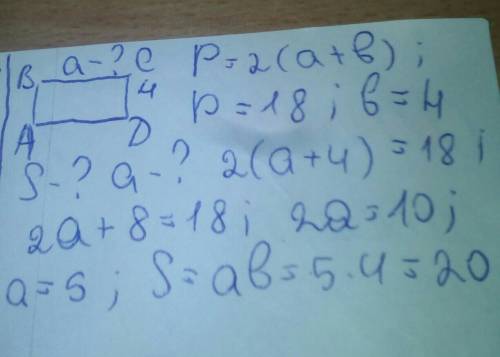 B a-? C P=2(a+в);
4 P=18; в=4
A D
S-? a-? 2(a+4)=18;
2a+8=18; 2a=10;
a=5; S=aв=5·4=20